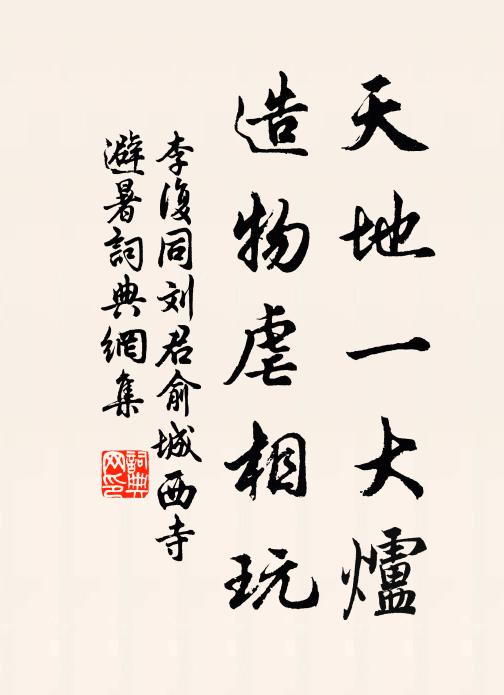 天地一大爐
造物虐相玩
李復同刘君俞城西寺
避暑詞典網集
詞典
网印